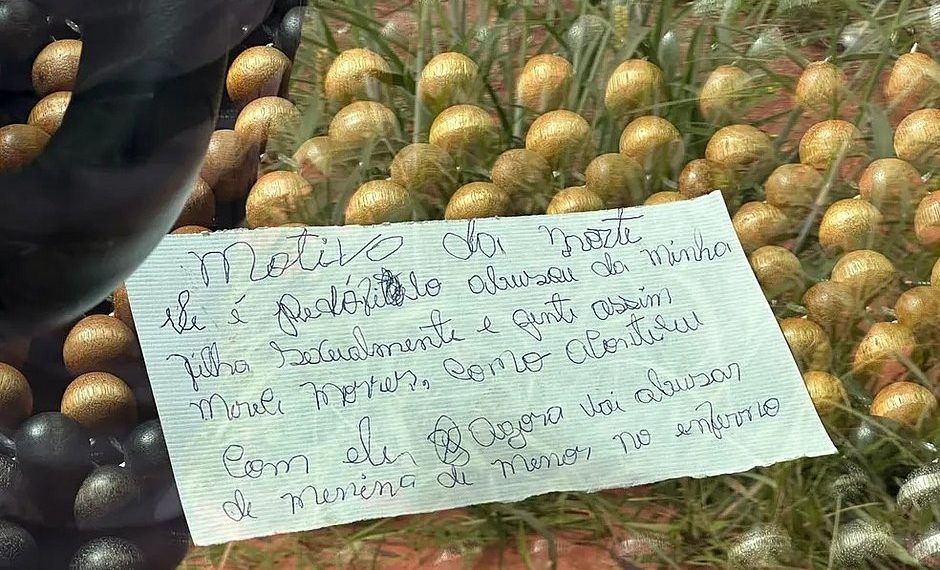 Motivo da morte
ele é pedófilo abusou da minha
filha sexualmente e gente assim
mereci morrer, como aconteceu
com ele, Agora vai abusar
de menina de menor, no inferno